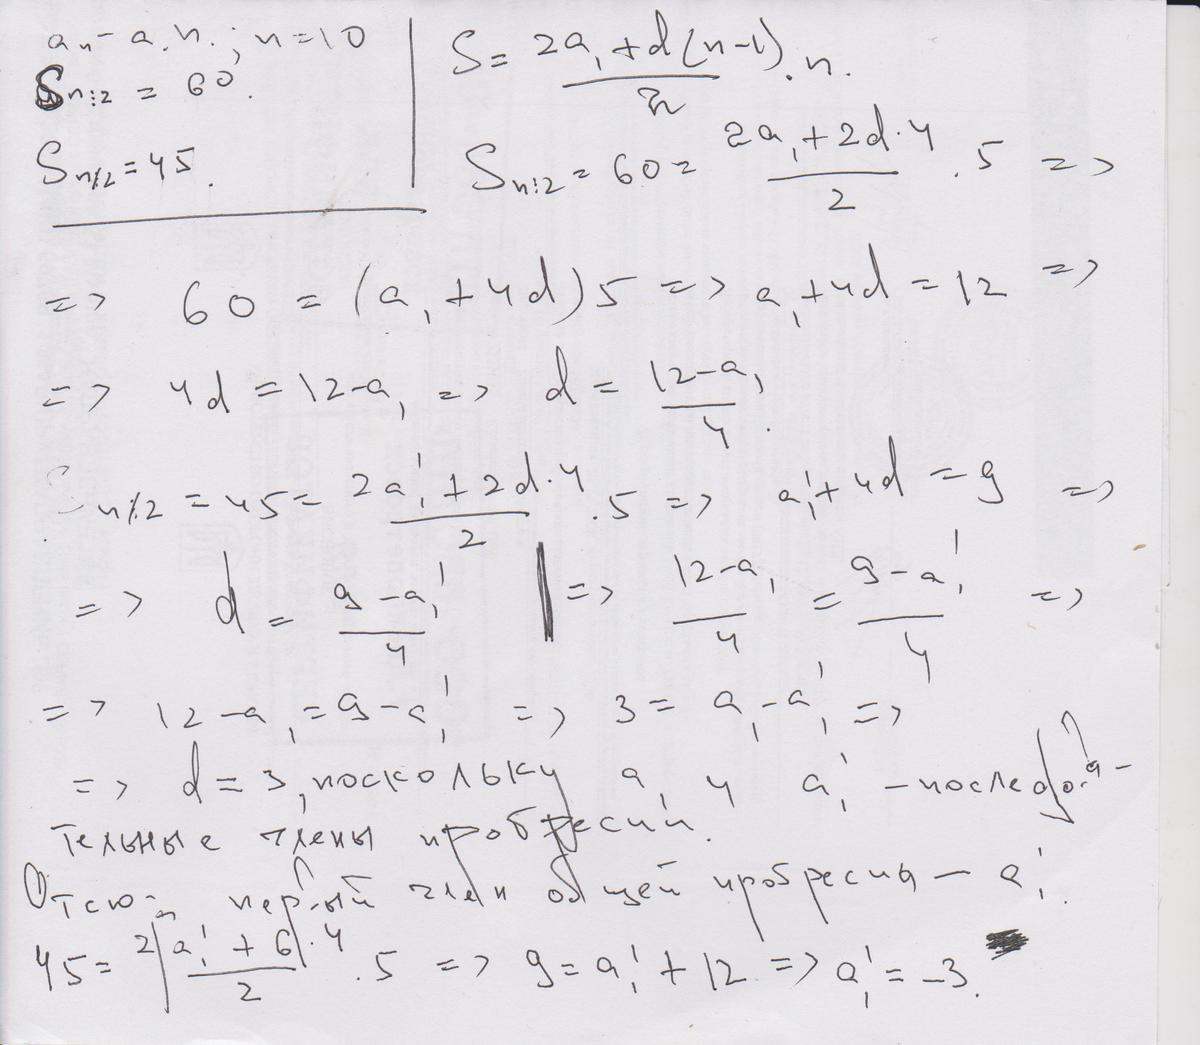 aₙ - а.п. ; n = 10
Sₙ:₂ = 60.
Sₙ٪₂ = 45.
S = (2a₁ + d(n-1))/2 · n.
Sₙ:₂ = 60 = (2a₁ + 2d·4)/2 · 5 =>
=> 60 = (a₁ + 4d)5 => a₁ + 4d = 12 =>
=> 4d = 12 - a₁ => d = (12 - a₁)/4.
Sₙ٪₂ = 45 = (2a₁' + 2d·4)/2 · 5 => a₁' + 4d = 9 =>
=> d = (9 - a₁')/4 | => (12 - a₁)/4 = (9 - a₁')/4 =>
=> 12 - a₁ = 9 - a₁' => 3 = a₁ - a₁' =>
=> d = 3, поскольку a₁ и a₁' - последова-
тельные члены прогресии.
Отсюда первый член общей прогресии - a₁'.
45 = (2a₁' + 6·4)/2 · 5 => 9 = a₁' + 12 => a₁' = -3.